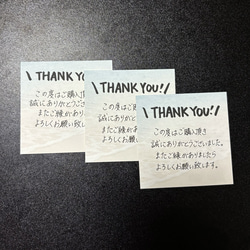 \ THANK YOU! /
この度はご購入頂き
誠にありがとうございま
またご縁がありま
よろしくお願い致
\ THANK YOU! /
この度はご購入
誠にありがとうござ
またご縁があり
よろしくお願い致
\ THANK YOU! /
この度はご購入頂き
誠にありがとうございました。
またご縁がありましたら
よろしくお願い致します。